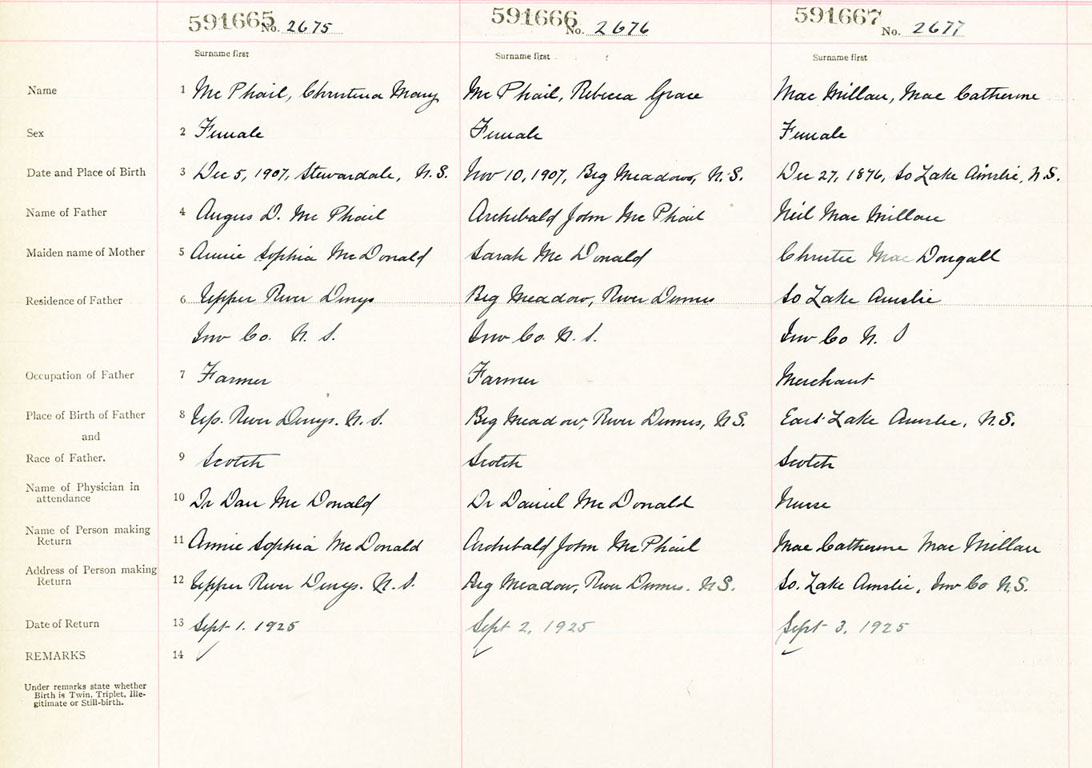 591665 No. 2675 591666 No. 2676 591667 No. 2677
Surname first Surname first Surname first
Name 1 Mc Phail, Christina Mary Mc Phail, Rebecca Grace Mac Millan, Mae Catherine
Sex 2 Female Female Female
Date and Place of Birth 3 Dec 5, 1907, Stewardale, N.S. Nov 10, 1907, Big Meadows, N.S. Dec 27, 1876, So Lake Ainslie, N.S.
Name of Father 4 Angus D. Mc Phail Archibald John Mc Phail Neil Mac Millan
Maiden name of Mother 5 Annie Sophia McDonald Sarah Mc Donald Christie Mac Dougall
Residence of Father 6 Upper River Denys Big Meadow, River Dennis So Lake Ainslie
Inv Co. N. S. Inv Co. N. S. Inv Co N. S
Occupation of Father 7 Farmer Farmer Merchant
Place of Birth of Father 8 Up. River Denys. N. S. Big Meadow, River Dennis, N.S. East Lake Ainslie, N.S.
and
Race of Father. 9 Scotch Scotch Scotch
Name of Physician in
attendance 10 Dr Dan Mc Donald Dr Daniel Mc Donald Nurse
Name of Person making
Return 11 Annie Sophia McDonald Archibald John McPhail Mae Catherine Mac Millan
Address of Person making
Return 12 Upper River Denys. N. S. Big Meadow, River Dennis. N.S. So. Lake Ainslie, Inv Co N.S.
Date of Return 13 Sept 1. 1925 Sept 2, 1925 Sept 3, 1925
REMARKS 14
Under remarks state whether
Birth is Twin, Triplet, Ille-
gitimate or Still-birth.